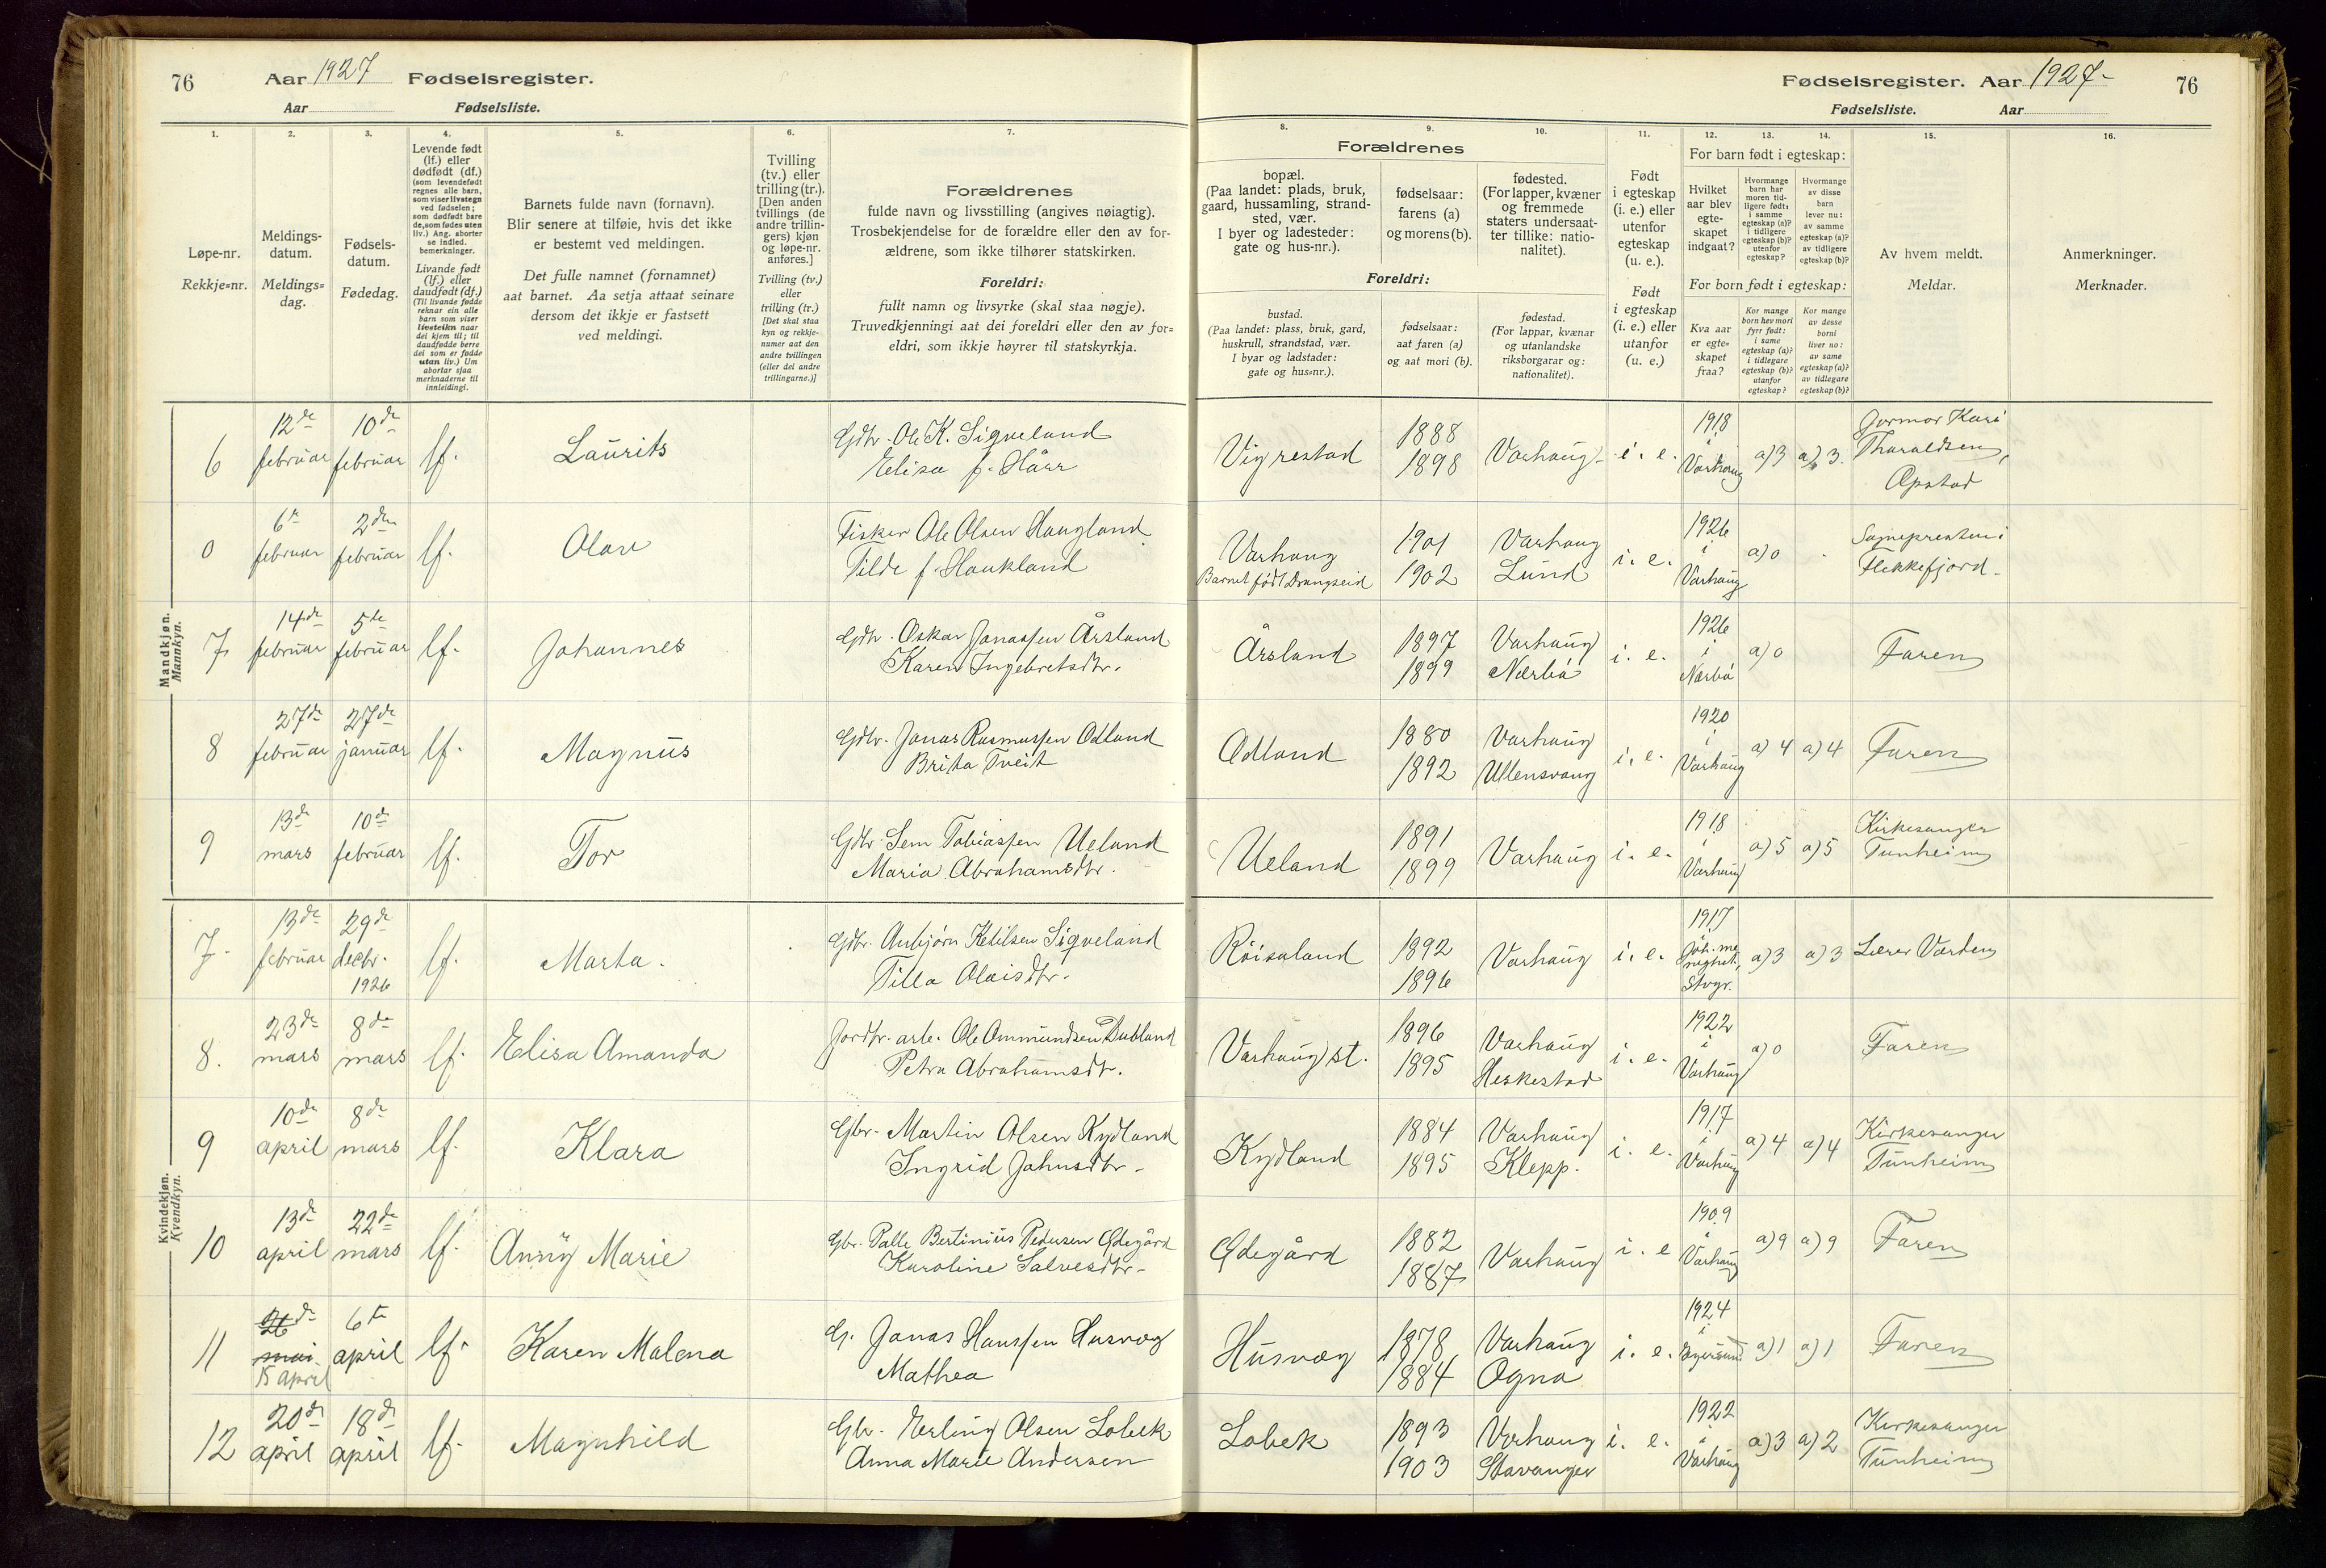 76 Aar 1927 Fødselsregister.
Aar Fødselsliste.
Fødselsregister. Aar 1927- 76
Fødselsliste. Aar
1. 2. 3. 4. 5. 6. 7.
Løpe-nr.
Rekkje=nr.
Meldings-
datum.
Meldings=
dag.
Fødsels-
datum.
Fødedag.
Levende født
(lf.) eller
dødfødt (df.)
(som levendefødt
regnes alle barn,
som viser livstegn
ved fødselen;
som dødfødt bare
de, som fødes uten
liv.) Ang. aborter
se indled.
bemerkninger.
Livande født
(lf.) eller
daudfødt (df.)
(Til livande fødde
reknar ein alle
barn som viser
livsteikn naar
dei kjem til; til
daudfødde berre
dei som er fødde
utan liv.) Um
abortar sjaa
merknaderne til
innleidingi.
Barnets fulde navn (fornavn).
Blir senere at tilføie, hvis det ikke
er bestemt ved meldingen.
Det fulle namnet (fornamnet)
aat barnet. Aa setja attaat seinare
dersom det ikkje er fastsett
ved meldingi.
Tvilling
(tv.) eller
trilling (tr.).
[Den anden
tvillings (de
andre trillin-
gers) kjøn
og løpe-nr.
anføres.]
Tvilling (tv.)
eller
trilling (tr.)
[Det skal staa
kyn og rekkje-
numer aat den
andre tvillingen
(eller dei andre
trillingarne.)]
Forældrenes
fulde navn og livsstilling (angives nøiagtig).
Trosbekjendelse for de forældre eller den av for-
ældrene, som ikke tilhører statskirken.
Foreldri:
fullt namn og livsyrke (skal staa nøgje).
Truvedkjenningi aat dei foreldri eller den av for=
eldri, som ikkje høyrer til statskyrkja.
8. 9. 10. 11. 12. 13. 14. 15. 16.
Forældrenes
bopæl.
(Paa landet: plads, bruk,
gaard, hussamling, strand-
sted, vær.
I byer og ladesteder:
gate og hus-nr.).
fødselsaar:
farens (a)
og morens (b).
fødested.
(For lapper, kvæner
og fremmede
staters undersaat-
ter tillike: natio-
nalitet).
Foreldri:
bustad.
(Paa landet: plass, bruk, gard,
huskrull, strandstad, vær.
I byar og ladstader:
gate og hus=nr.).
fødselsaar:
aat faren (a)
og aat mori (b).
fødestad.
(For lappar, kvænar
og utanlandske
riksborgarar og:
nationalitet).
Født
i egteskap
(i. e.) eller
utenfor
egteskap
(u. e.).
Født
i egteskap
(i. e.) eller
utanfor
(u. e.)
For barn født i egteskap:
Hvilket
aar blev
egte-
skapet
indgaat?
Hvormange
barn har
moren tid-
ligere født:
i samme
egteskap (a)?
i tidligere
egteskap (b)?
utenfor
egteskap?
Hvormange
av disse
barn
lever nu:
av samme
egteskap (a)?
av tidligere
egteskap (b)?
For born født i egteskap:
Kva aar
er egte=
skapet
fraa?
Kor mange
born hev mori
fyrr født:
i same
egteskap (a)?
i tidlegare
egteskap (b)?
utanfor
egteskap?
Kor mange
av desse
borni
liver no:
av same
egteskap (a)?
av tidlegare
egteskap (b)?
Av hvem meldt.
Meldar.
Anmerkninger.
Merknader.
Mandkjøn.
Mannkyn.
6 12de februar 10de februar lf. Laurits Gdbr. Ole K. Sigveland
Elisa f. Hårr
Vigrestad 1888 1898 Varhaug i. e. 1918 i Varhaug a) 3 a) 3. Jormor Kari
Tharaldsen,
Opstad
0 6te februar 2den februar lf. Olav Fisker Ole Olsen Haugland
Tilde f. Haukland
Varhaug
Barnet født Drangeid
1901 1902 Varhaug Lund i. e. 1926 i Varhaug a) 0 - Sognepresten i
Flekkefjord.
7 14de februar 5te februar lf. Johannes Gdbr. Oskar Jonassen Årsland
Karen Ingebretsdtr.
Årsland 1897 1899 Varhaug Nærbö i. e. 1926 i Nærbö a) 0 Faren
8 27de februar 27de januar lf. Magnus Gdbr. Jonas Rasmussen Odland
Brita Tveit
Odland 1880 1892 Varhaug Ullensvang i. e. 1920 i Varhaug a) 4 a) 4 Faren
9 13de mars 10de februar lf. Tor Gdbr. Sem Tobiassen Ueland
Maria Abrahamsdtr.
Ueland 1891 1899 Varhaug i. e. 1918 i Varhaug a) 5 a) 5 Kirkesanger
Tunheim
Kvindekjøn.
Kvendkyn.
7. 13de februar 29de decbr. 1926 lf. Marta. Gdbr. Anbjörn Ketilsen Sigveland
Tilla Olaisdtr.
Röisaland 1892 1896 Varhaug i. e. 1917 Stvgr. a) 3 a) 3 Lærer Varden
8. 23de mars 8de mars lf. Elisa Amanda Jordbr. arb. Ole Ommundsen Dubland
Petra Abrahamsdtr.
Varhaug st. 1896 1895 Varhaug Heskestad i. e. 1922 i Varhaug a) 0 Faren
9 10de april 8de mars lf. Klara Gbr. Martin Olsen Kydland
Ingrid Johnsdtr.
Kydland 1884 1895 Varhaug Klepp. i. e. 1917 i Varhaug a) 4 a) 4 Kirkesanger
Tunheim
10 13de april 22de mars lf. Anny Marie Gbr. Palle Bertinius Pedersen Ødegård
Karoline Salvesdtr.
Ødegård 1882 1887 Varhaug i. e 1909 i Varhaug a) 9 a) 9 Faren
11 26de mai 15 april 6te april lf. Karen Malena G. Jonas Hanssen Husvæg
Mathea
Husvæg 1878 1884 Varhaug Ogna i. e. 1924 i Egersund a) 1 a) 1 Faren
12 20de april 18de april lf. Magnhild Gbr. Erling Olsen Lobek
Anna Marie Andersen
Lobek 1893 1903 Varhaug Stavanger i. e. 1922 i Varhaug a) 3 a) 2 Kirkesanger
Tunheim